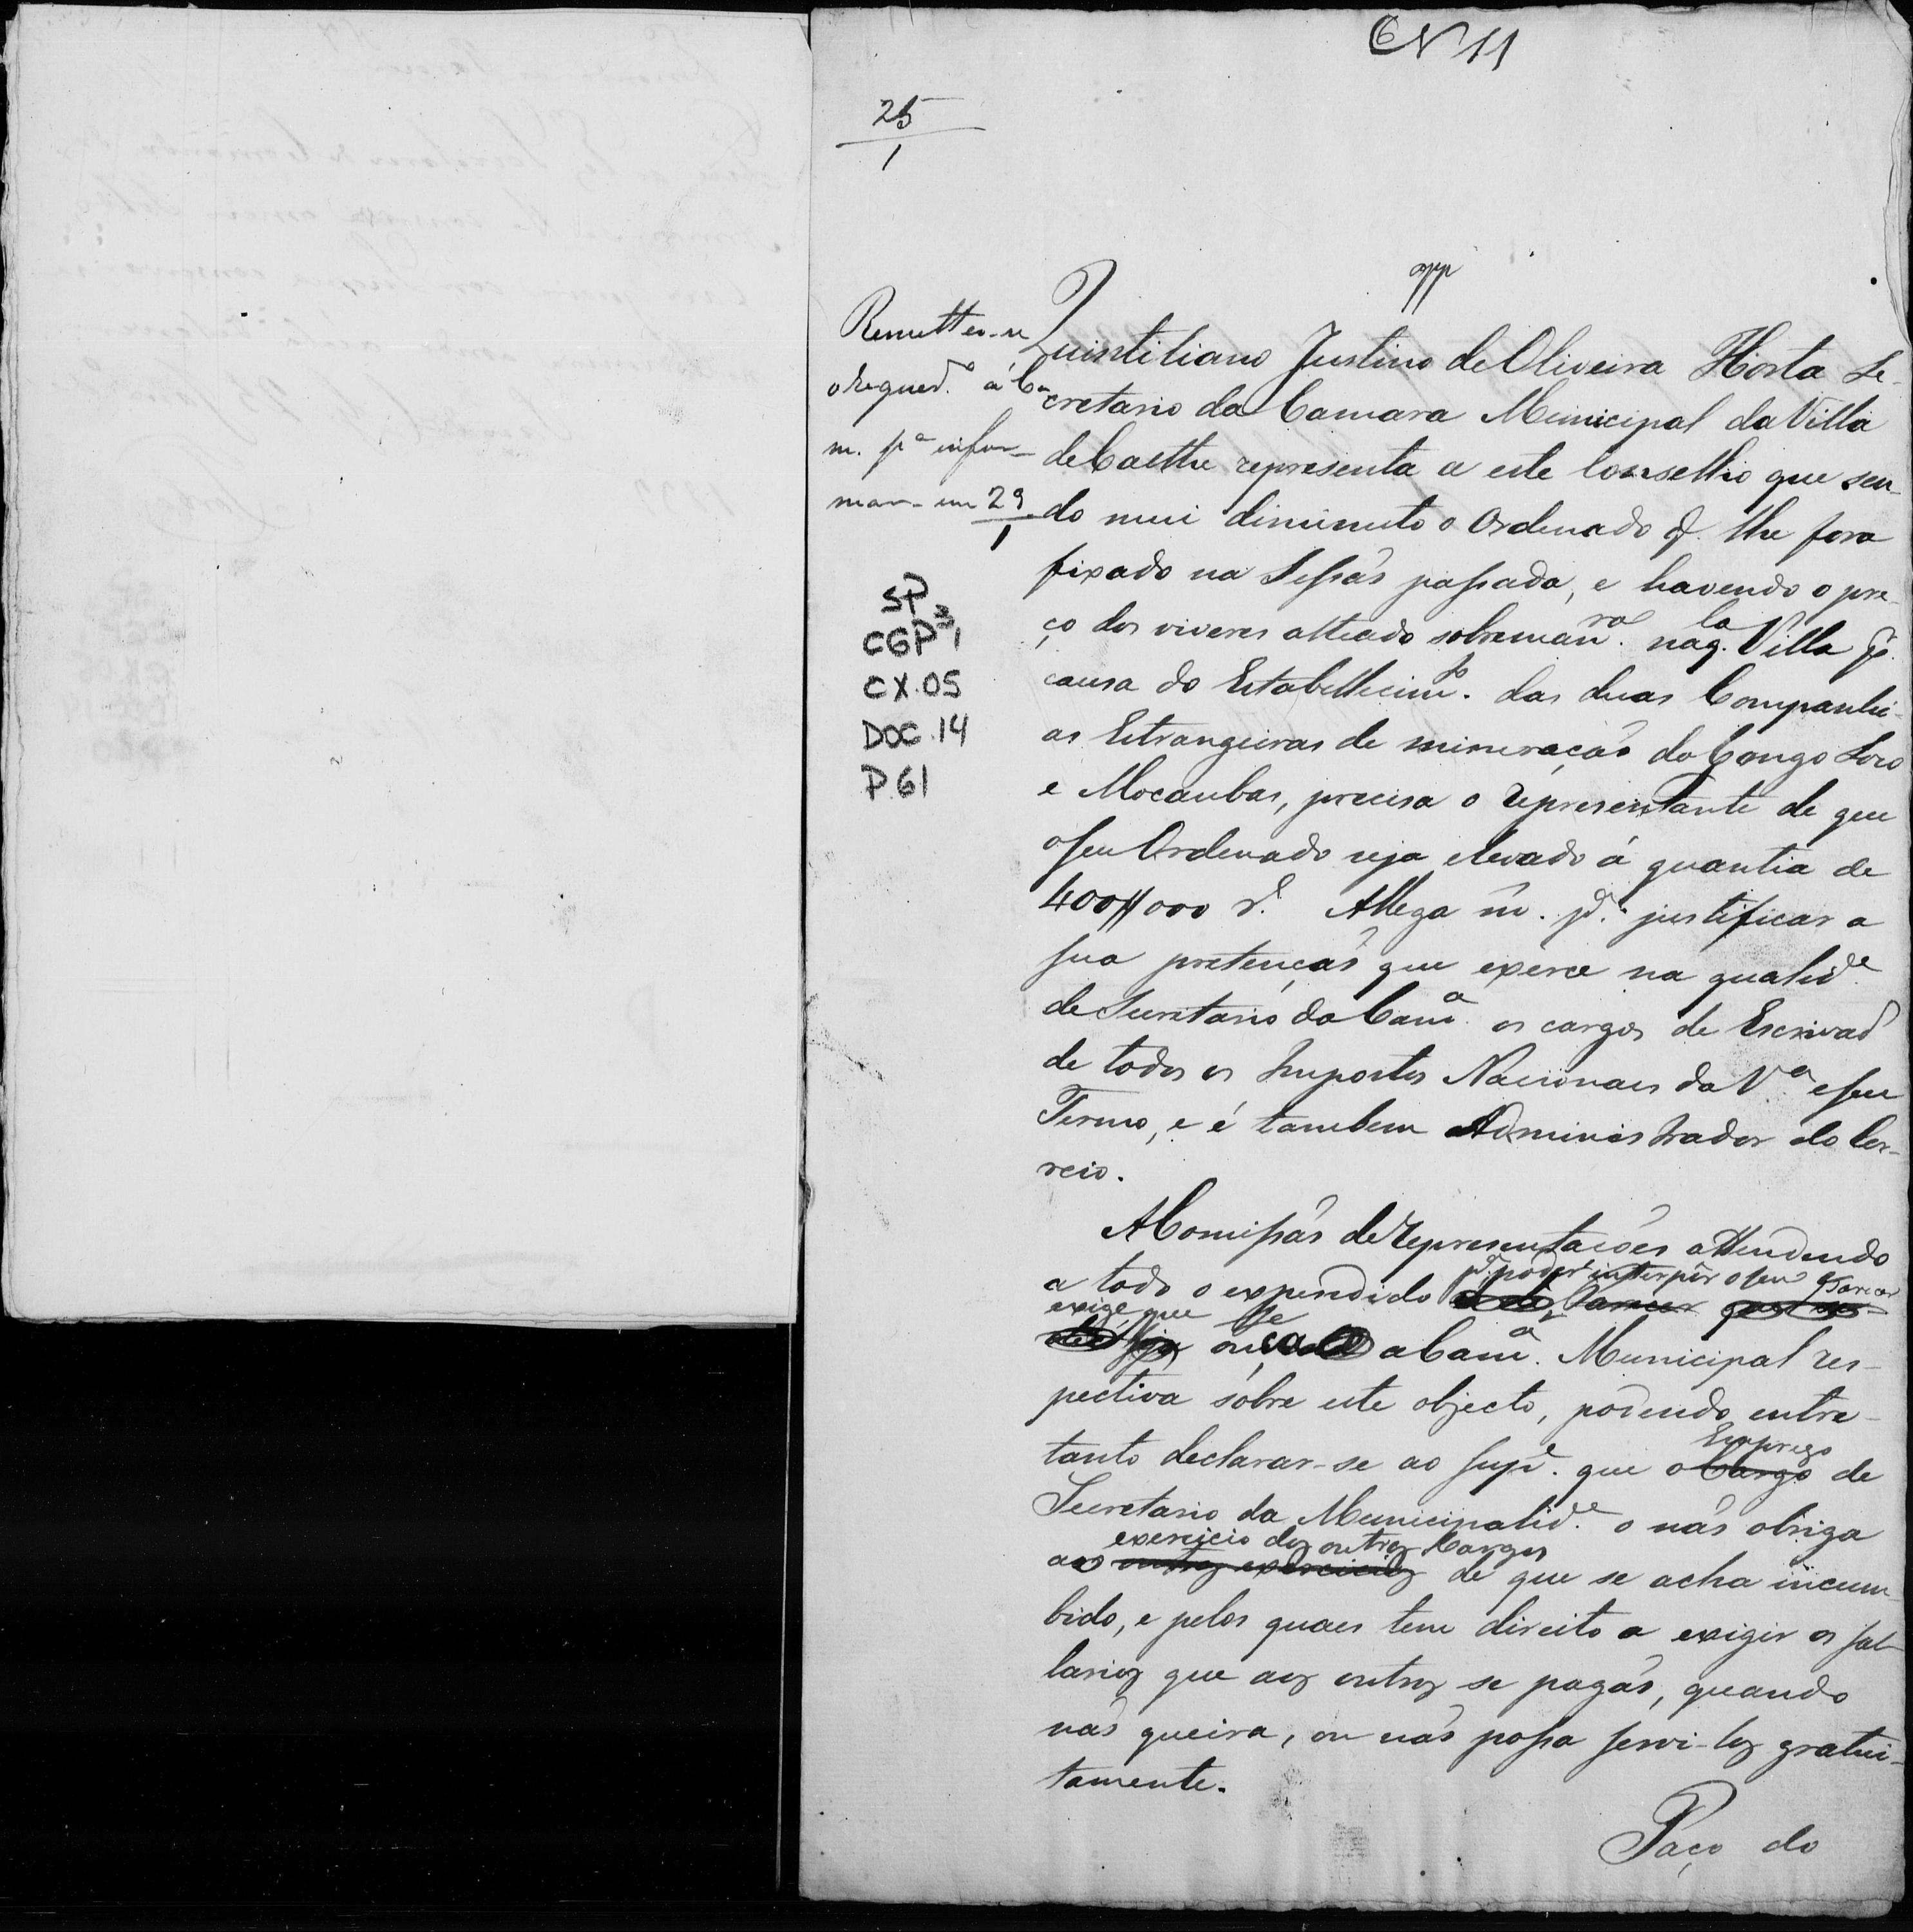 N 11
25
1
app
Remetteo-se
o requer.o á Ca
m. p.a infor-
mar - em 29
1
SP
CGP3,
CX.05
DOC.14
P.61
Quintiliano Justino de Oliveira Horta Se-
cretario da Camara Municipal da Villa
de Caethe representa a este Conselho que sen-
do mui diminuto o Ordenado q. lhe fora
fixado na Sessaõ passada, e havendo o pre-
ço dos viveres alteado sobreman.ra naq.la Villa p.r
causa do Estabellecim.to das duas Companhi-
as Estrangeiras de mineraçaõ do Congo Soco
e Mocaubas, precisa o representante de que
o seu Ordenado seja elevado á quantia de
400$000 r.s Allega m. p.a justificar a
sua pretençaõ que exerce na qualid.e
de Secretario da Cam.a os cargos de Escrivaõ
de todos os Impostos Nacionaes da V.a e seu
Termo, e é tambem Administrador do Cor-
reio.
A Comissaõ de representações attendendo
p.a poder interpôr o seu Parecer
a todo o expendido Parecer que
exige que se
seja ouça a Cam.a Municipal res-
pectiva sobre este objecto, podendo entre-
Emprego
tanto declarar-se ao Sup.e que o Cargo de
Secretario da Municipalid.e o naõ obriga
exercicio dos outros Cargos
aos outros exercicios de que se acha incum-
bido, e pelos quaes tem direito a exigir os sal-
larios que aos outros se pagaõ, quando
naõ queira, ou naõ possa servi-los gratui-
tamente.
Paço do